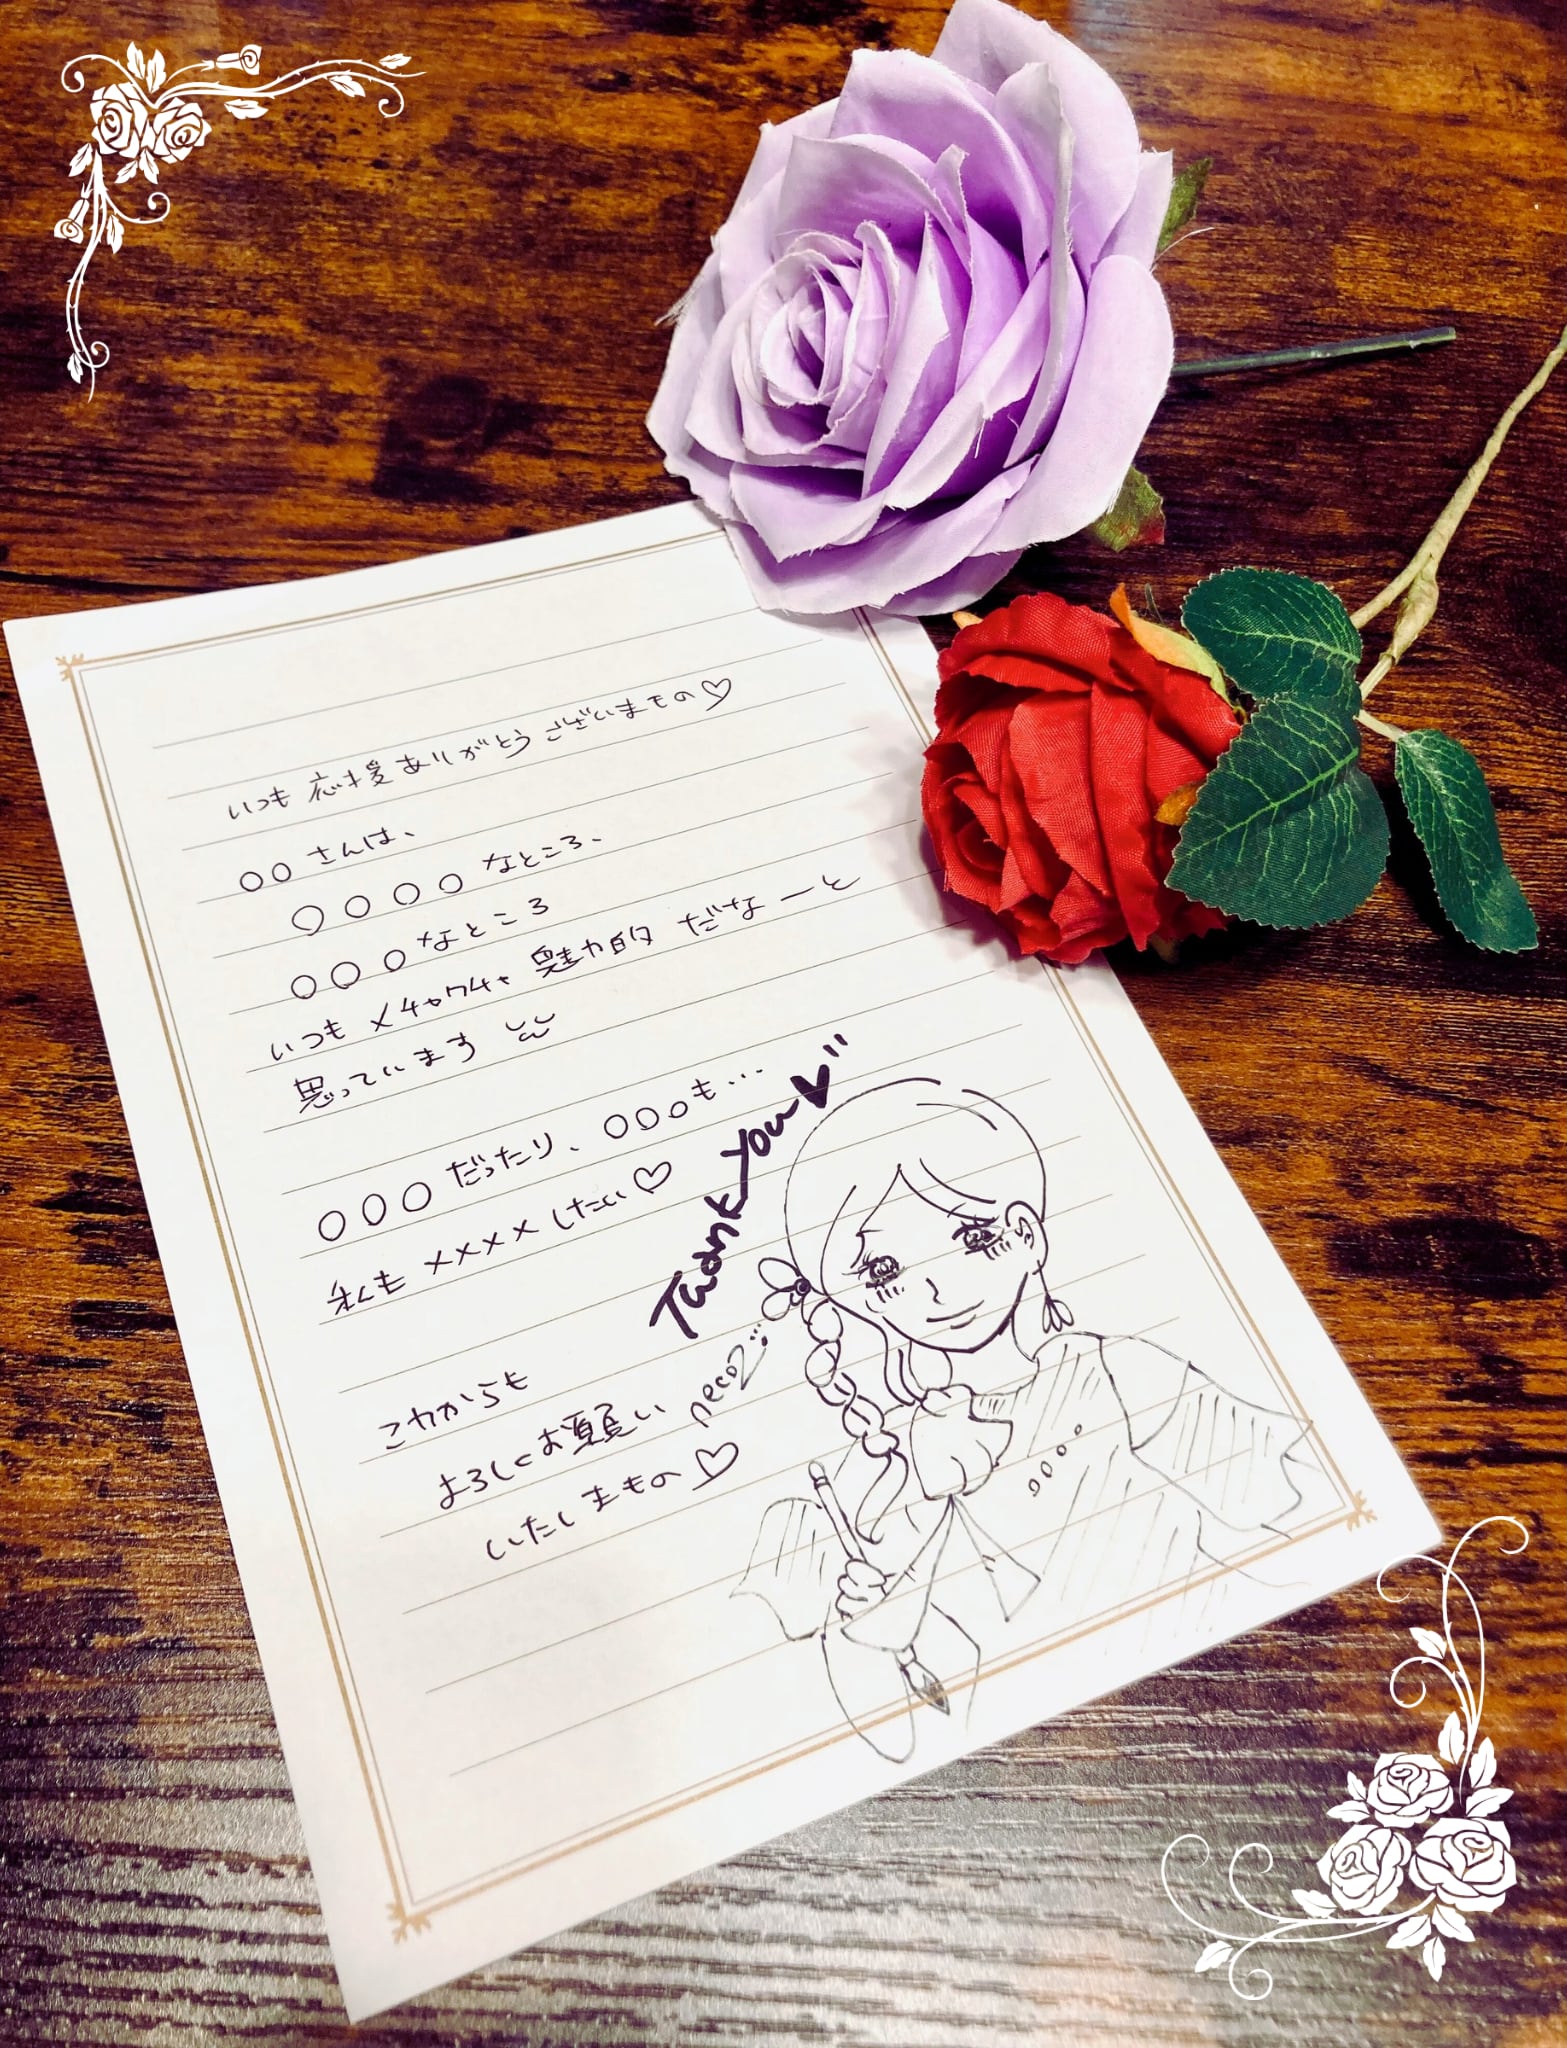 いつも応援ありがとうございまもの♡
○○さんは、
○○○○なところ、
○○○なところ
いつもメチャクチャ魅力的だなーと
思っています
○○○だったり、○○○も…
私も××××したい♡
Thank you♥
neco2
これからも
よろしくお願い
いたしまもの♡